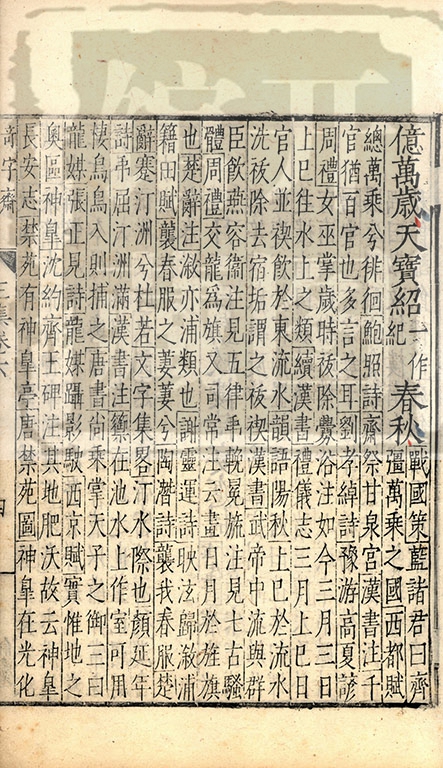 億萬歲天寶紹一作紀春秋
戰國策藍諸君曰齊
彊萬乘之國西都賦
總萬乘兮徘徊鮑照詩齋祭甘泉宮漢書注千
官猶百官也多言之耳劉孝綽詩豫游高夏諺
周禮女巫掌歲時祓除釁浴注如今三月三日
上巳往水上之類續漢書禮儀志三月上巳日
官人並禊飲於東流水韻語陽秋上巳於流水
洗祓除去宿垢謂之祓禊漢書武帝中流與群
臣飲燕容衞注見五律乎輓冕旒注見七古騷
體周禮交龍爲旗又司常注云畫日月於旌旗
也楚辭注漵亦浦類也謝靈運詩眏泫歸漵浦
籍田賦襲春服之萋萋兮陶潛詩襲我春服楚
辭蹇汀洲兮杜若文字集畧汀水際也顏延年
詩弔屈汀洲滿漢書注籞在池水上作室可用
棲鳥鳥入則捕之唐書尚乘掌天子之御三曰
龍媒張正見詩龍媒躡影駛西京賦實惟地之
奧區神皐沈約齊王碑注其地肥沃故云神皐
長安志禁苑有神皐亭唐禁苑圖神皐在光化